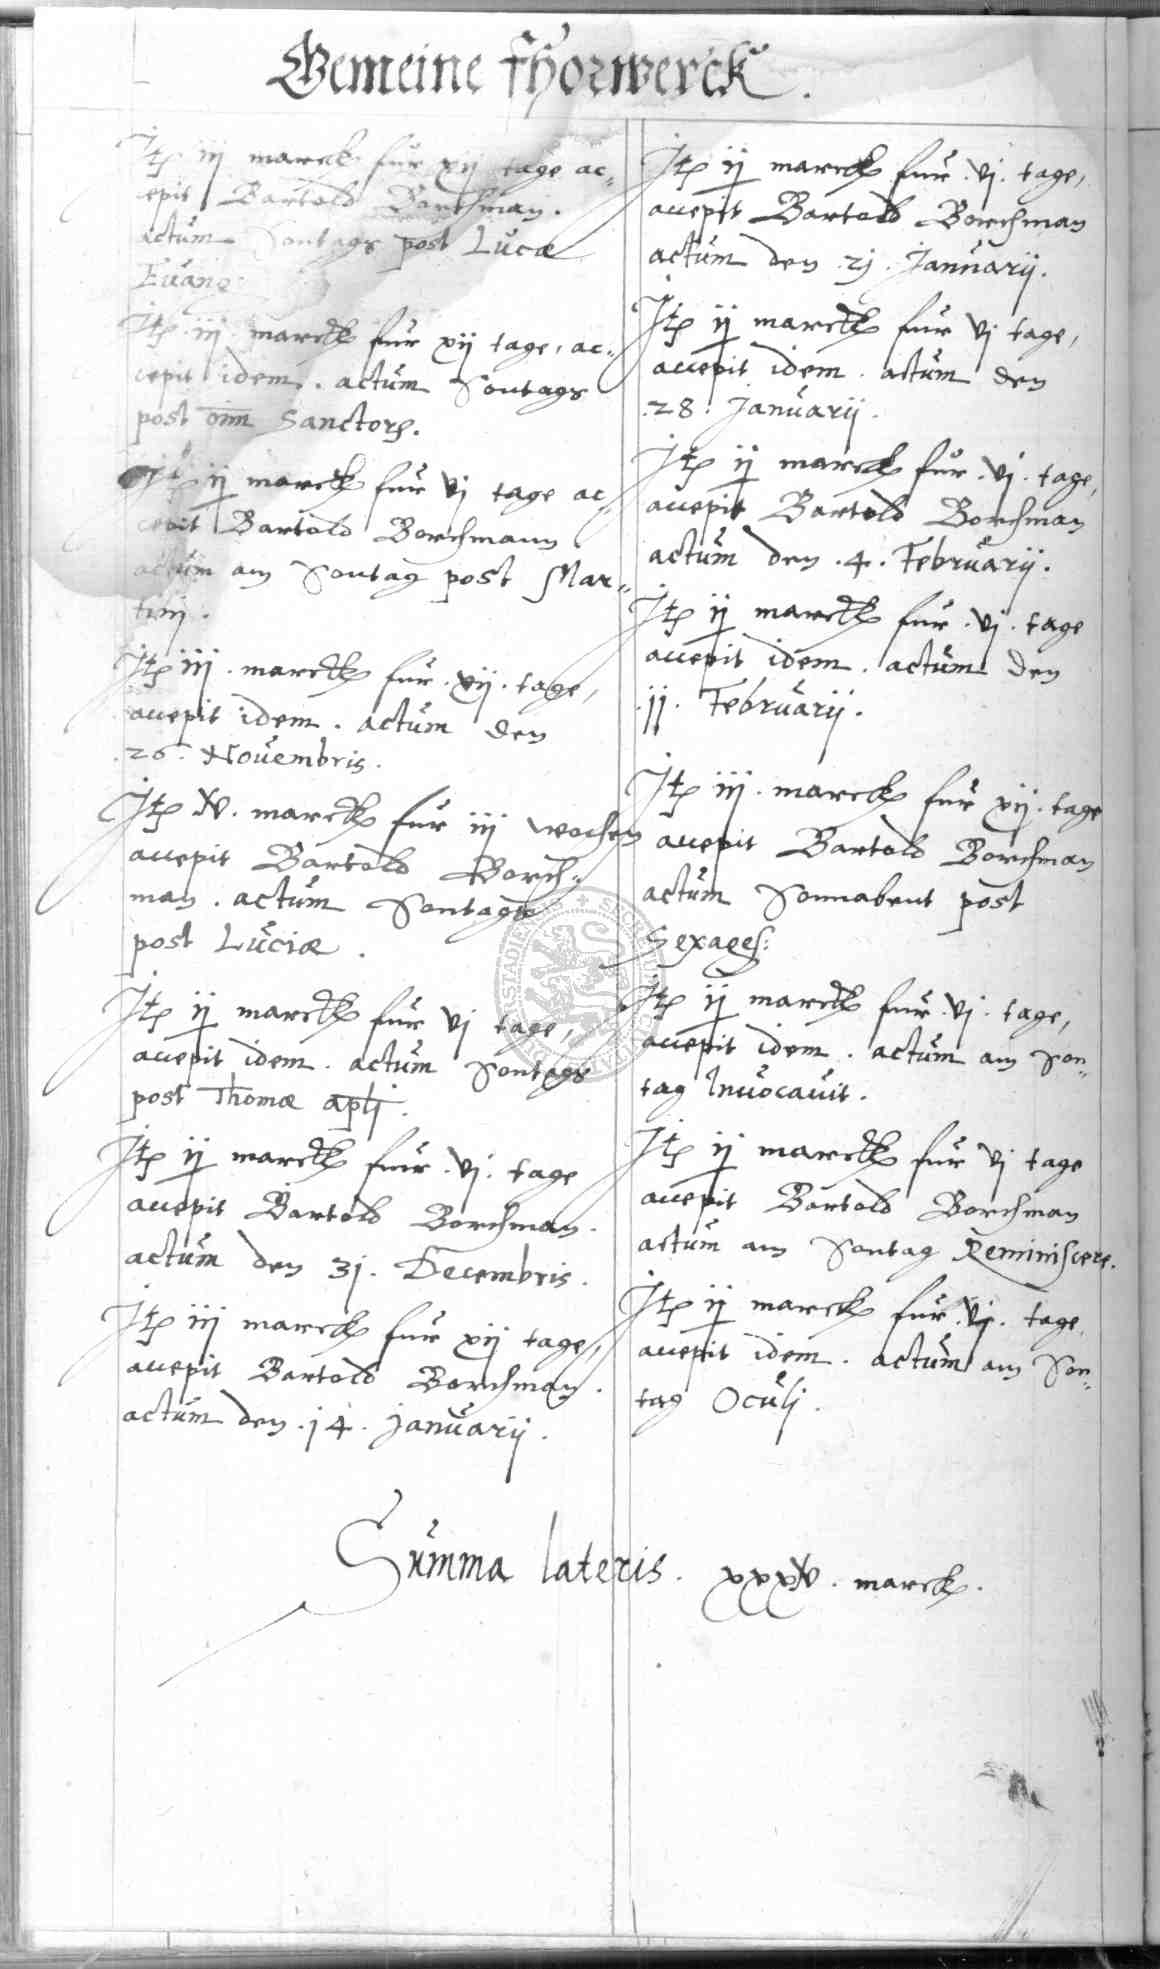 Gemeine fhorwerck.
Jtē iij marck für xij tage ac-
cepit Bartold Borchman.
actum Sontags post Lucæ
Euang:
Jtē iij marck für xij tage, ac-
cepit idem. actum Sontags
post oīm Sanctorū.
Jtē ij marck für vj tage ac-
cepit Bartold Borchmann
actum am Sontag post Mar-
tinj.
Jtē iij. marck für .xij. tage,
accepit idem. actum den
.26. Nouembris.
Jtē iv. marck für iij wochen
accepit Bartold Borch-
man. actum Sontags
post Luciæ.
Jtē ij marck für vj tage,
accepit idem. actum Sontags
post Thomæ aplj.
Jtē ij marck für .vj. tage
accepit Bartold Borchman.
actum den 3j. Decembris.
Jtē iij marck für xij tage,
accepit Bartold Borchman.
actum den .j4. januarij.
Jtē ij marck für .vj. tage,
accepit Bartold Borchman
actum den .2j. Januarij.
Jtē ij marck für vj tage,
accepit idem. actum den
.28. Januarij.
Jtē ij marck für .vj. tage,
accepit Bartold Borchman
actum den .4. Februarij.
Jtē ij marck für .vj. tage
accepit idem. actum den
.jj. Februarij.
Jtē iij. marck für xij. tage
accepit Bartold Borchman
actum Sonnabent post
Sexages:
Jtē ij marck für .vj. tage,
accepit idem. actum am Son-
tag Invocauit.
Jtē ij marck für vj tage
accepit Bartold Borchman
actum am Sontag Reminiscere.
Jtē ij marck für .vj. tage,
accepit idem. actum am Son-
tag Oculj.
Summa lateris. xxxiv. marck.